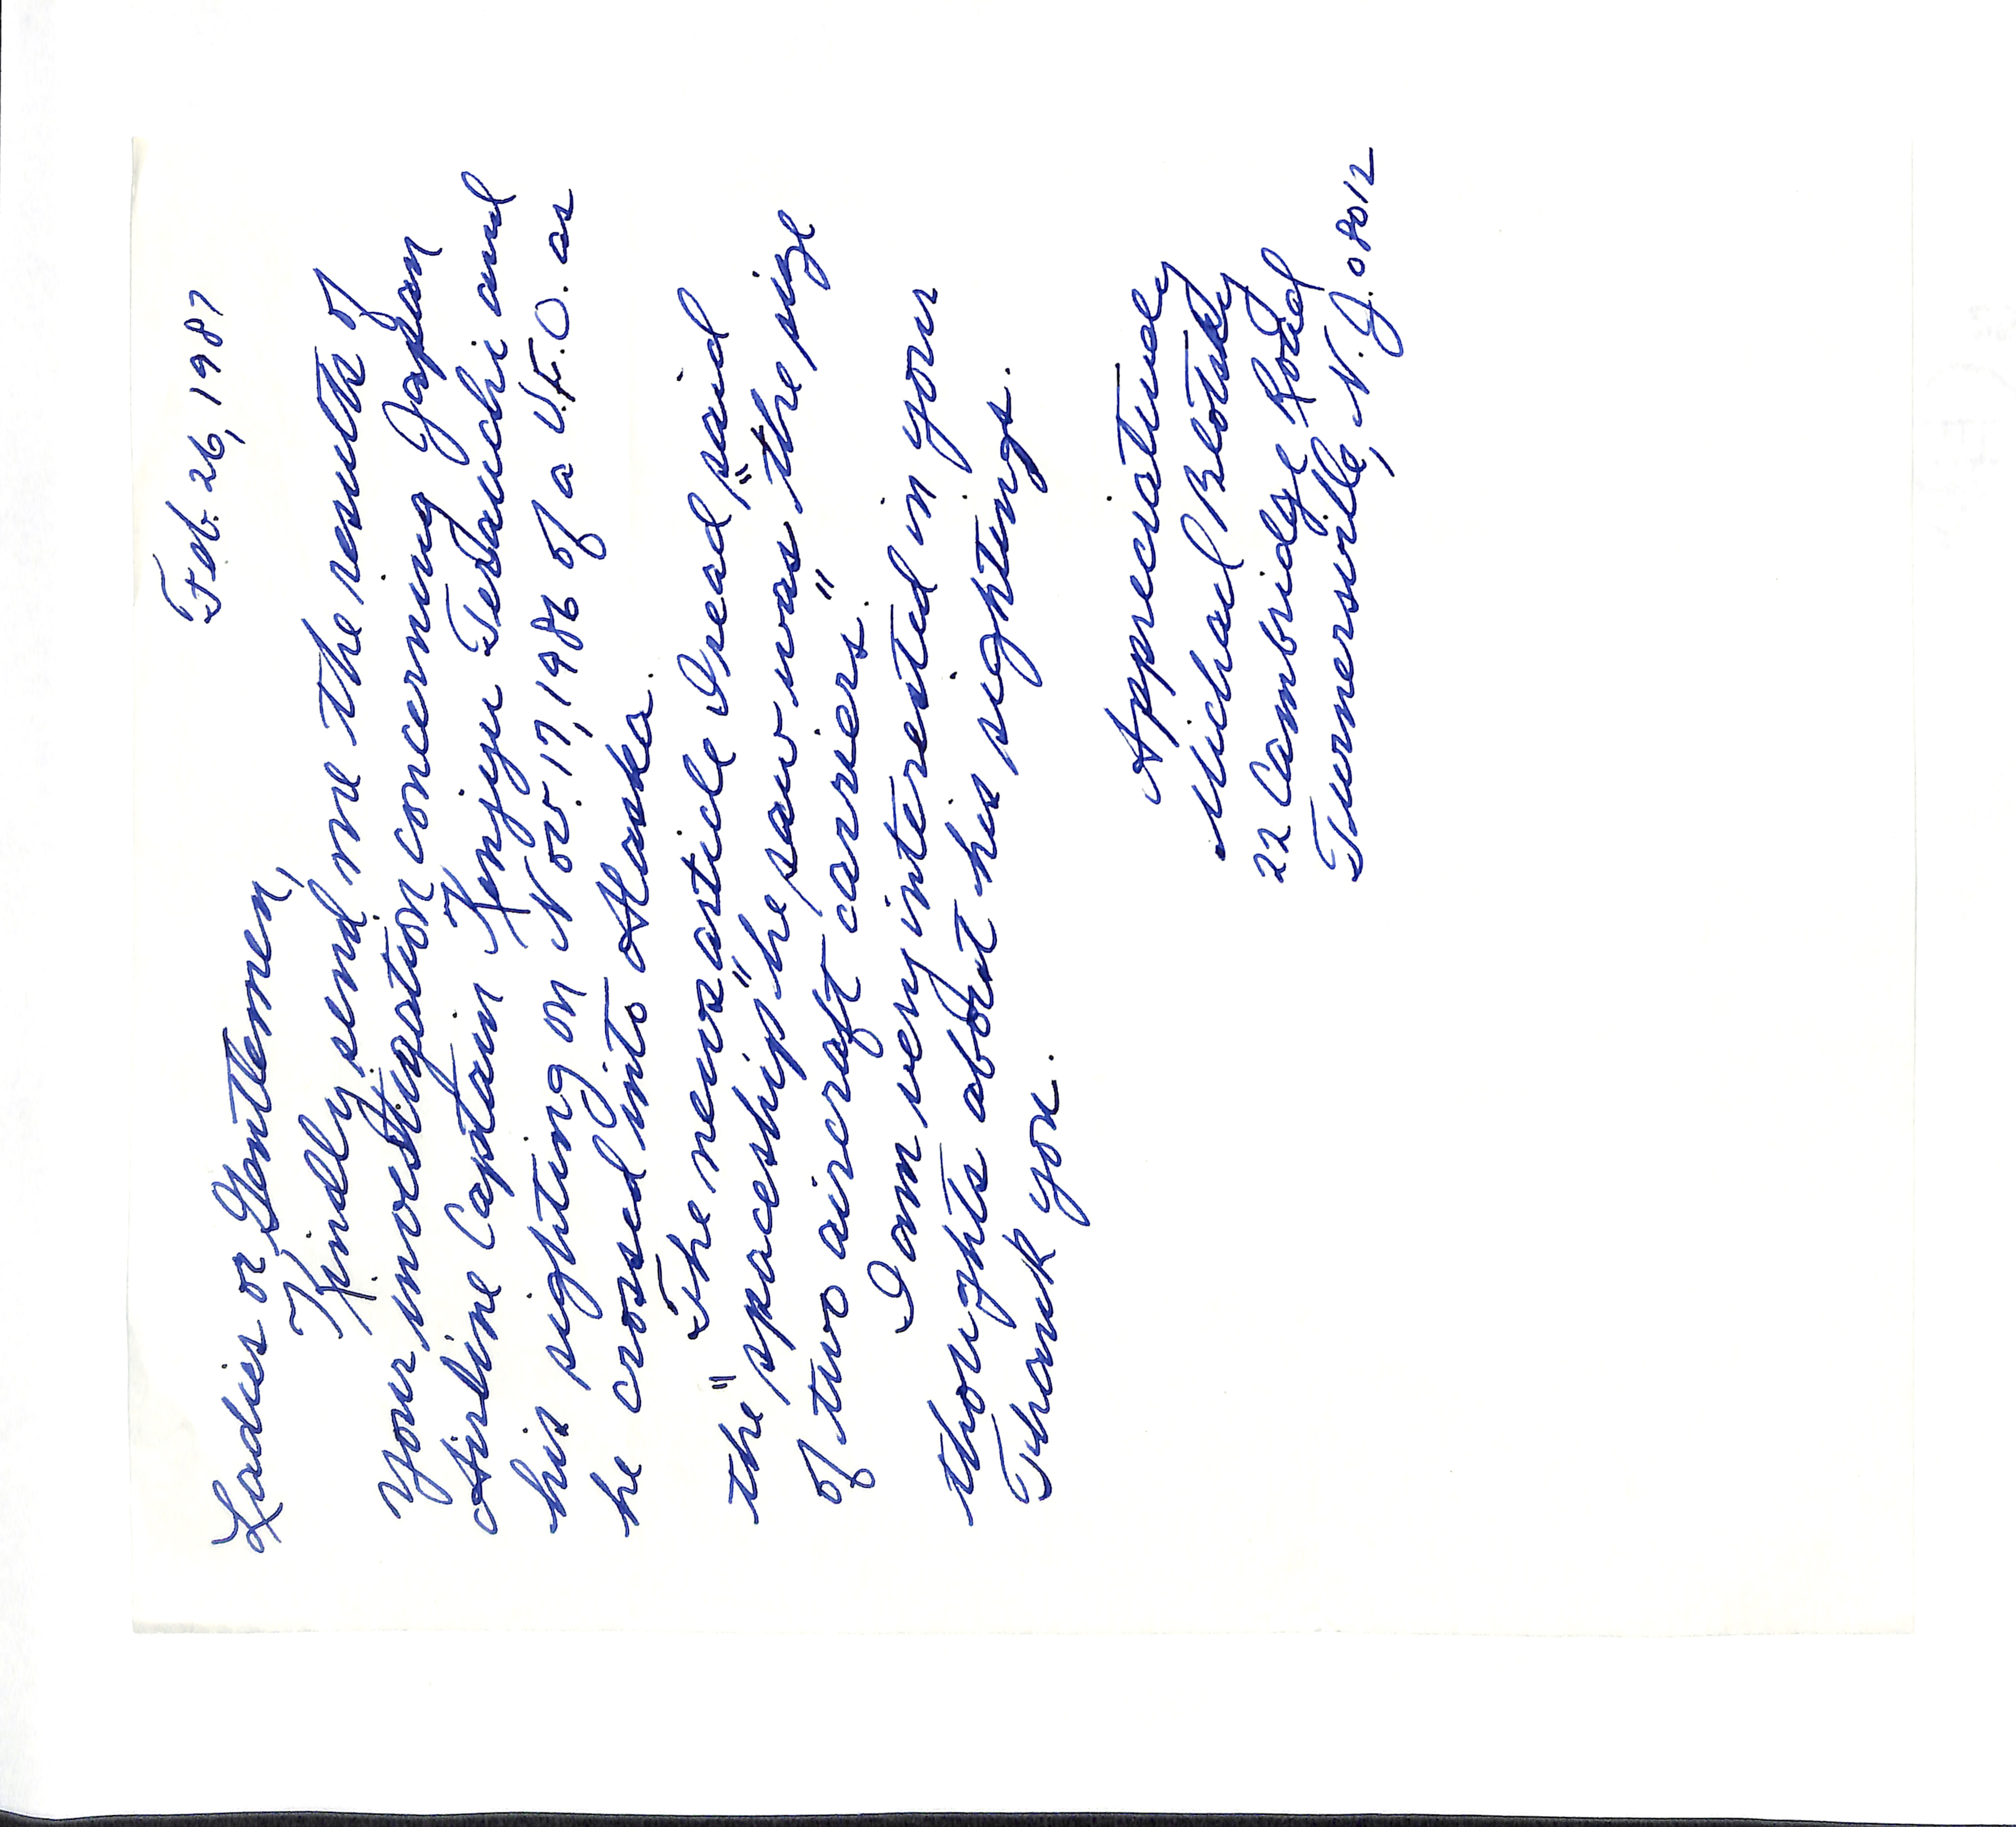 Feb. 26, 1987
Ladies or Gentlemen,
Kindly send me the results of
your investigation concerning Japan
Airline Captain Kenjyu Terauchi and
his sighting on Nov. 17, 1986 of a U.F.O. as
he crossed into Alaska.
The news article I read said
the "spaceship" he saw was "the size
of two aircraft carriers."
I am very interested in your
thoughts about his sightings.
Thank you.
Appreciatively
Michael
22 Cambridge Road
Turnersville, N.J. 08012